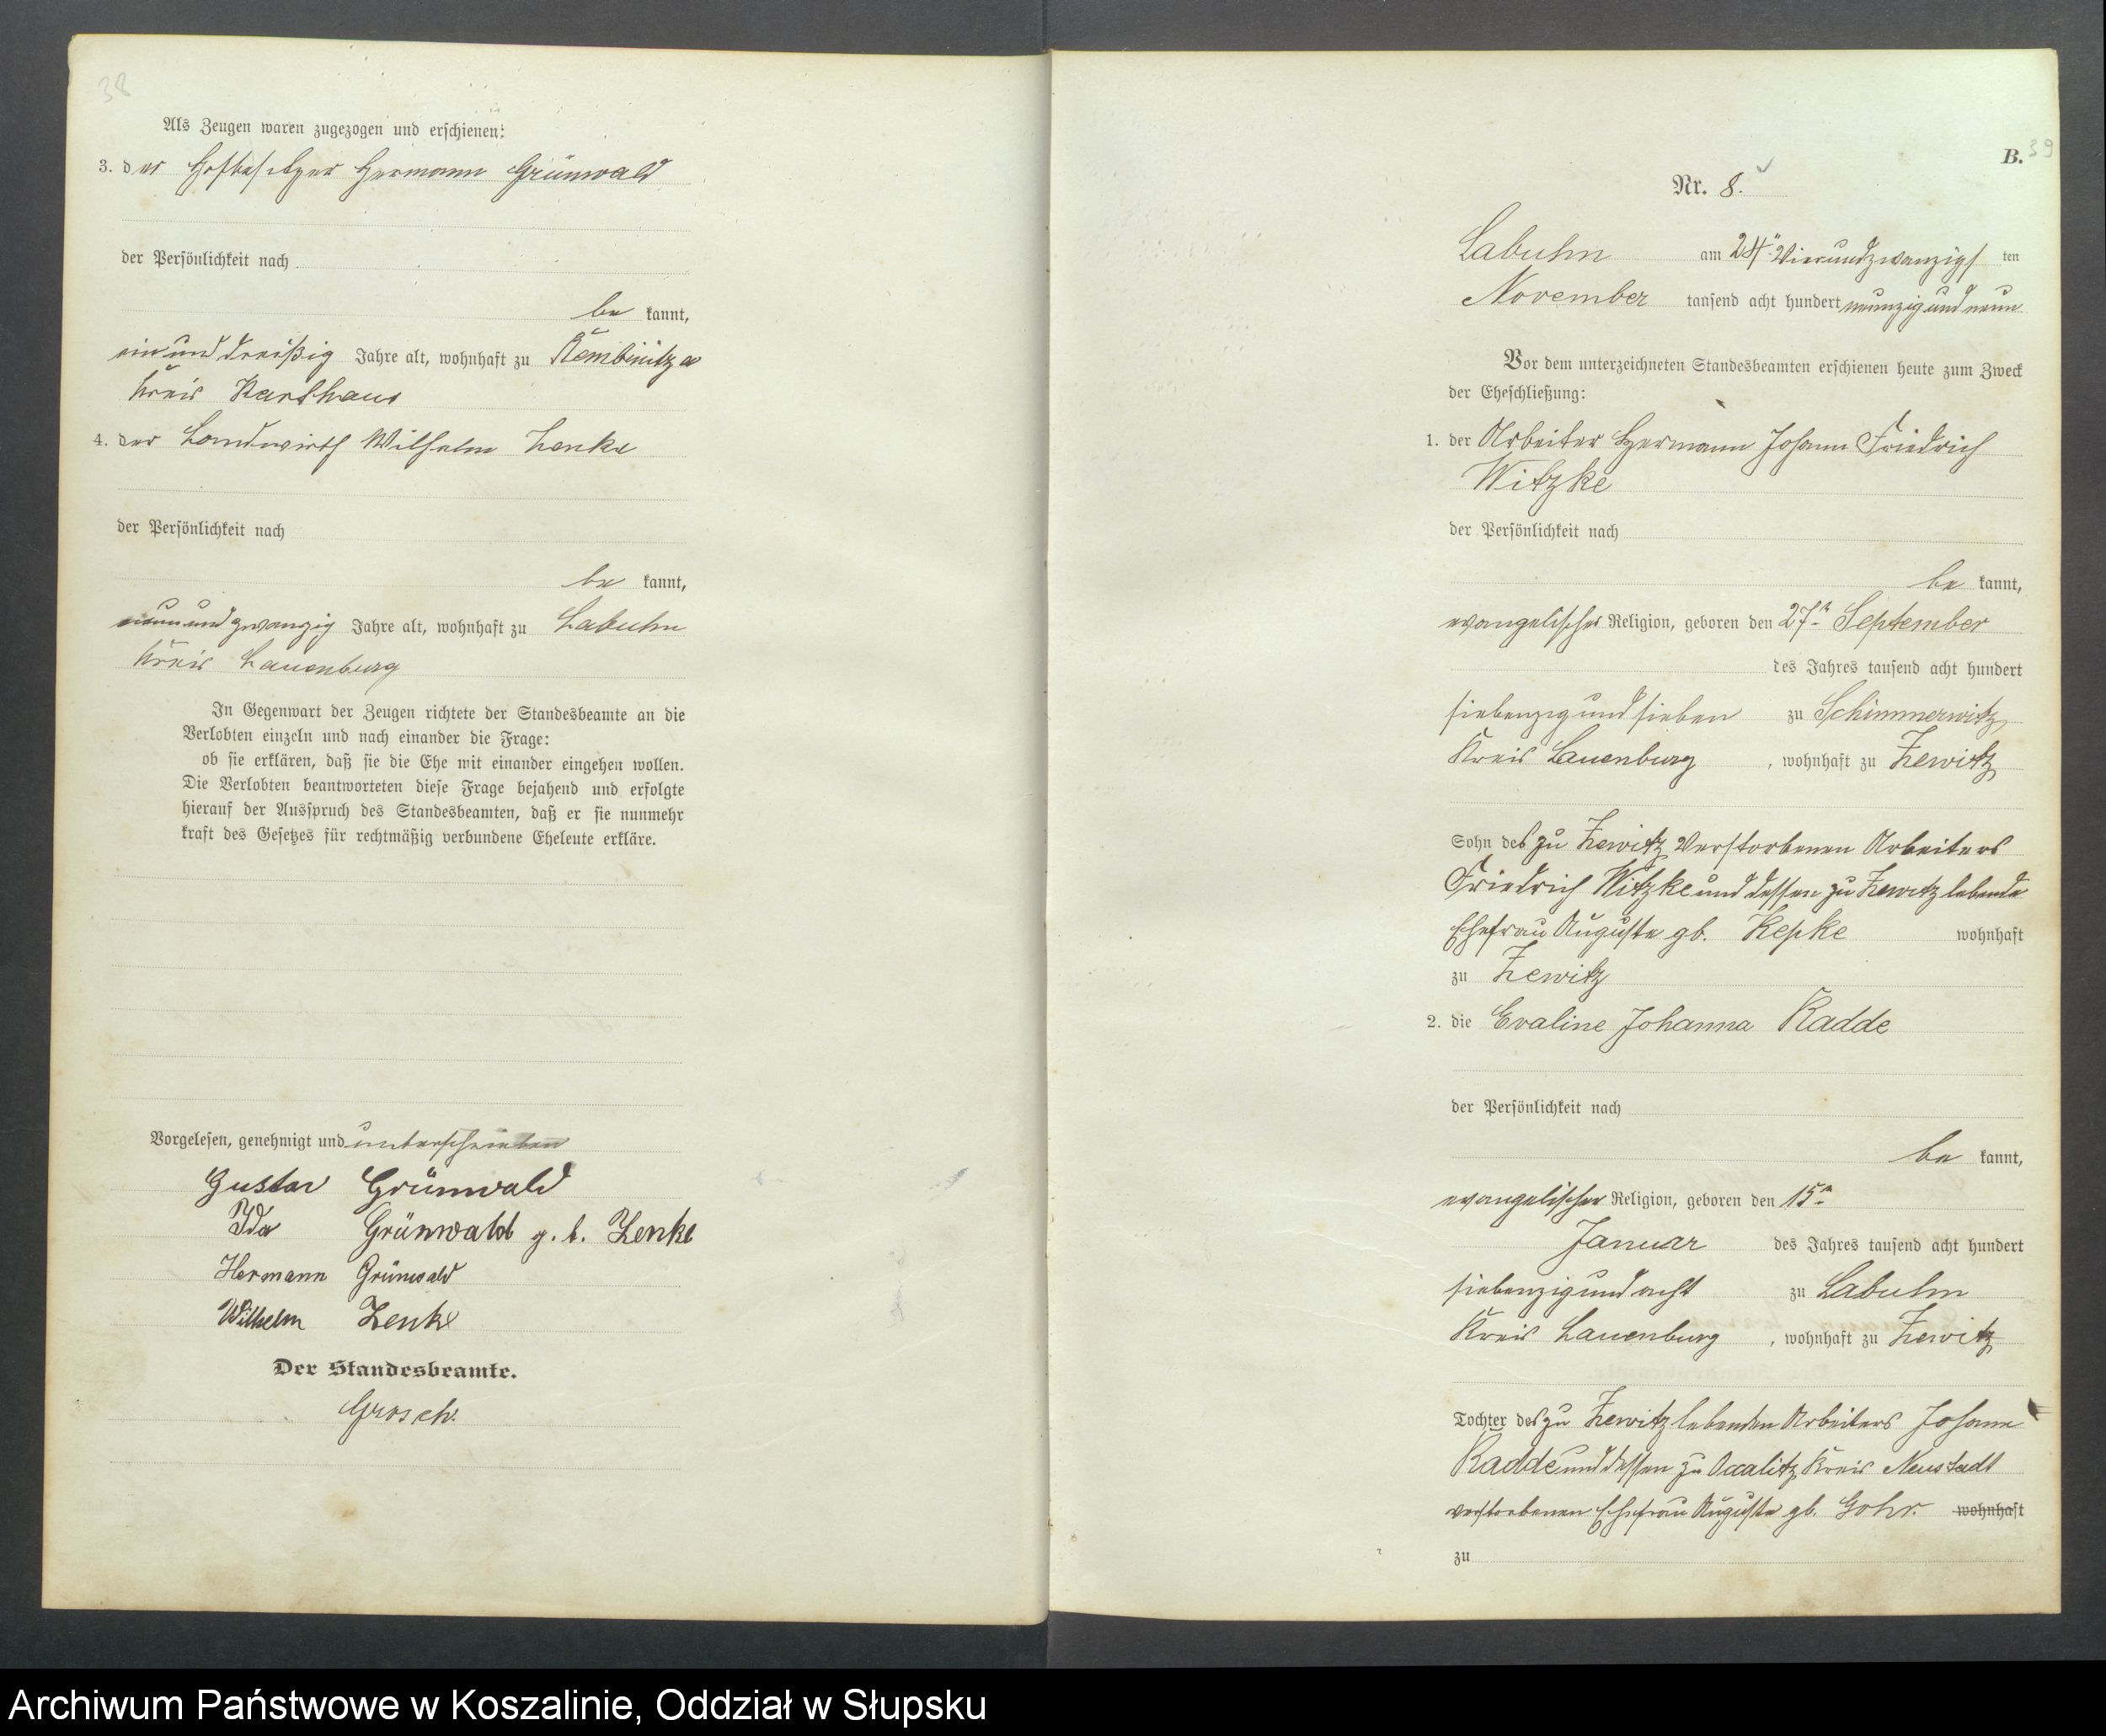 38
Als Zeugen waren zugezogen und erschienen:
3. der Hofbesitzer Hermann Grünwald
der Persönlichkeit nach
be kannt,
ein und dreißig Jahre alt, wohnhaft zu
Kreis Karthaus
4. der Landwirth Wilhelm Zenke
der Persönlichkeit nach
be kannt,
neun und zwanzig Jahre alt, wohnhaft zu Labuhn
Kreis Lauenburg
In Gegenwart der Zeugen richtete der Standesbeamte an die
Verlobten einzeln und nach einander die Frage:
ob sie erklären, daß sie die Ehe mit einander eingehen wollen.
Die Verlobten beantworteten diese Frage bejahend und erfolgte
hierauf der Ausspruch des Standesbeamten, daß er sie nunmehr
kraft des Gesetzes für rechtmäßig verbundene Eheleute erkläre.
Vorgelesen, genehmigt und unterschrieben
Gustav Grünwald
Ida Grünwald g. b. Zenke
Hermann Grünwald
Wilhelm Zenke
Der Standesbeamte.
Grosch.
B. 39
Nr. 8.
Labuhn am 24ten Vierundzwanzigs ten
November tausend acht hundert neunzig und neun
Vor dem unterzeichneten Standesbeamten erschienen heute zum Zweck
der Eheschließung:
1. der Arbeiter Hermann Johann Friedrich
Witzke
der Persönlichkeit nach
be kannt,
evangelischer Religion, geboren den 27ten September
des Jahres tausend acht hundert
siebenzig und sieben zu Schimmerwitz,
Kreis Lauenburg, wohnhaft zu Zewitz
Sohn des zu Zewitz verstorbenen Arbeiters
Friedrich Witzke und dessen zu Zewitz lebende
Ehefrau Auguste gb. Kepke wohnhaft
zu Zewitz
2. die Evaline Johanna Radde
der Persönlichkeit nach
be kannt,
evangelischer Religion, geboren den 15ten
Januar des Jahres tausend acht hundert
siebenzig und acht zu Labuhn
Kreis Lauenburg, wohnhaft zu Zewitz
Tochter des zu Zewitz lebenden Arbeiters Johann
Radde und dessen zu Occalitz Kreis Neustadt
verstorbenen Ehefrau Auguste gb. Gohr. wohnhaft
zu
Archiwum Państwowe w Koszalinie, Oddział w Słupsku